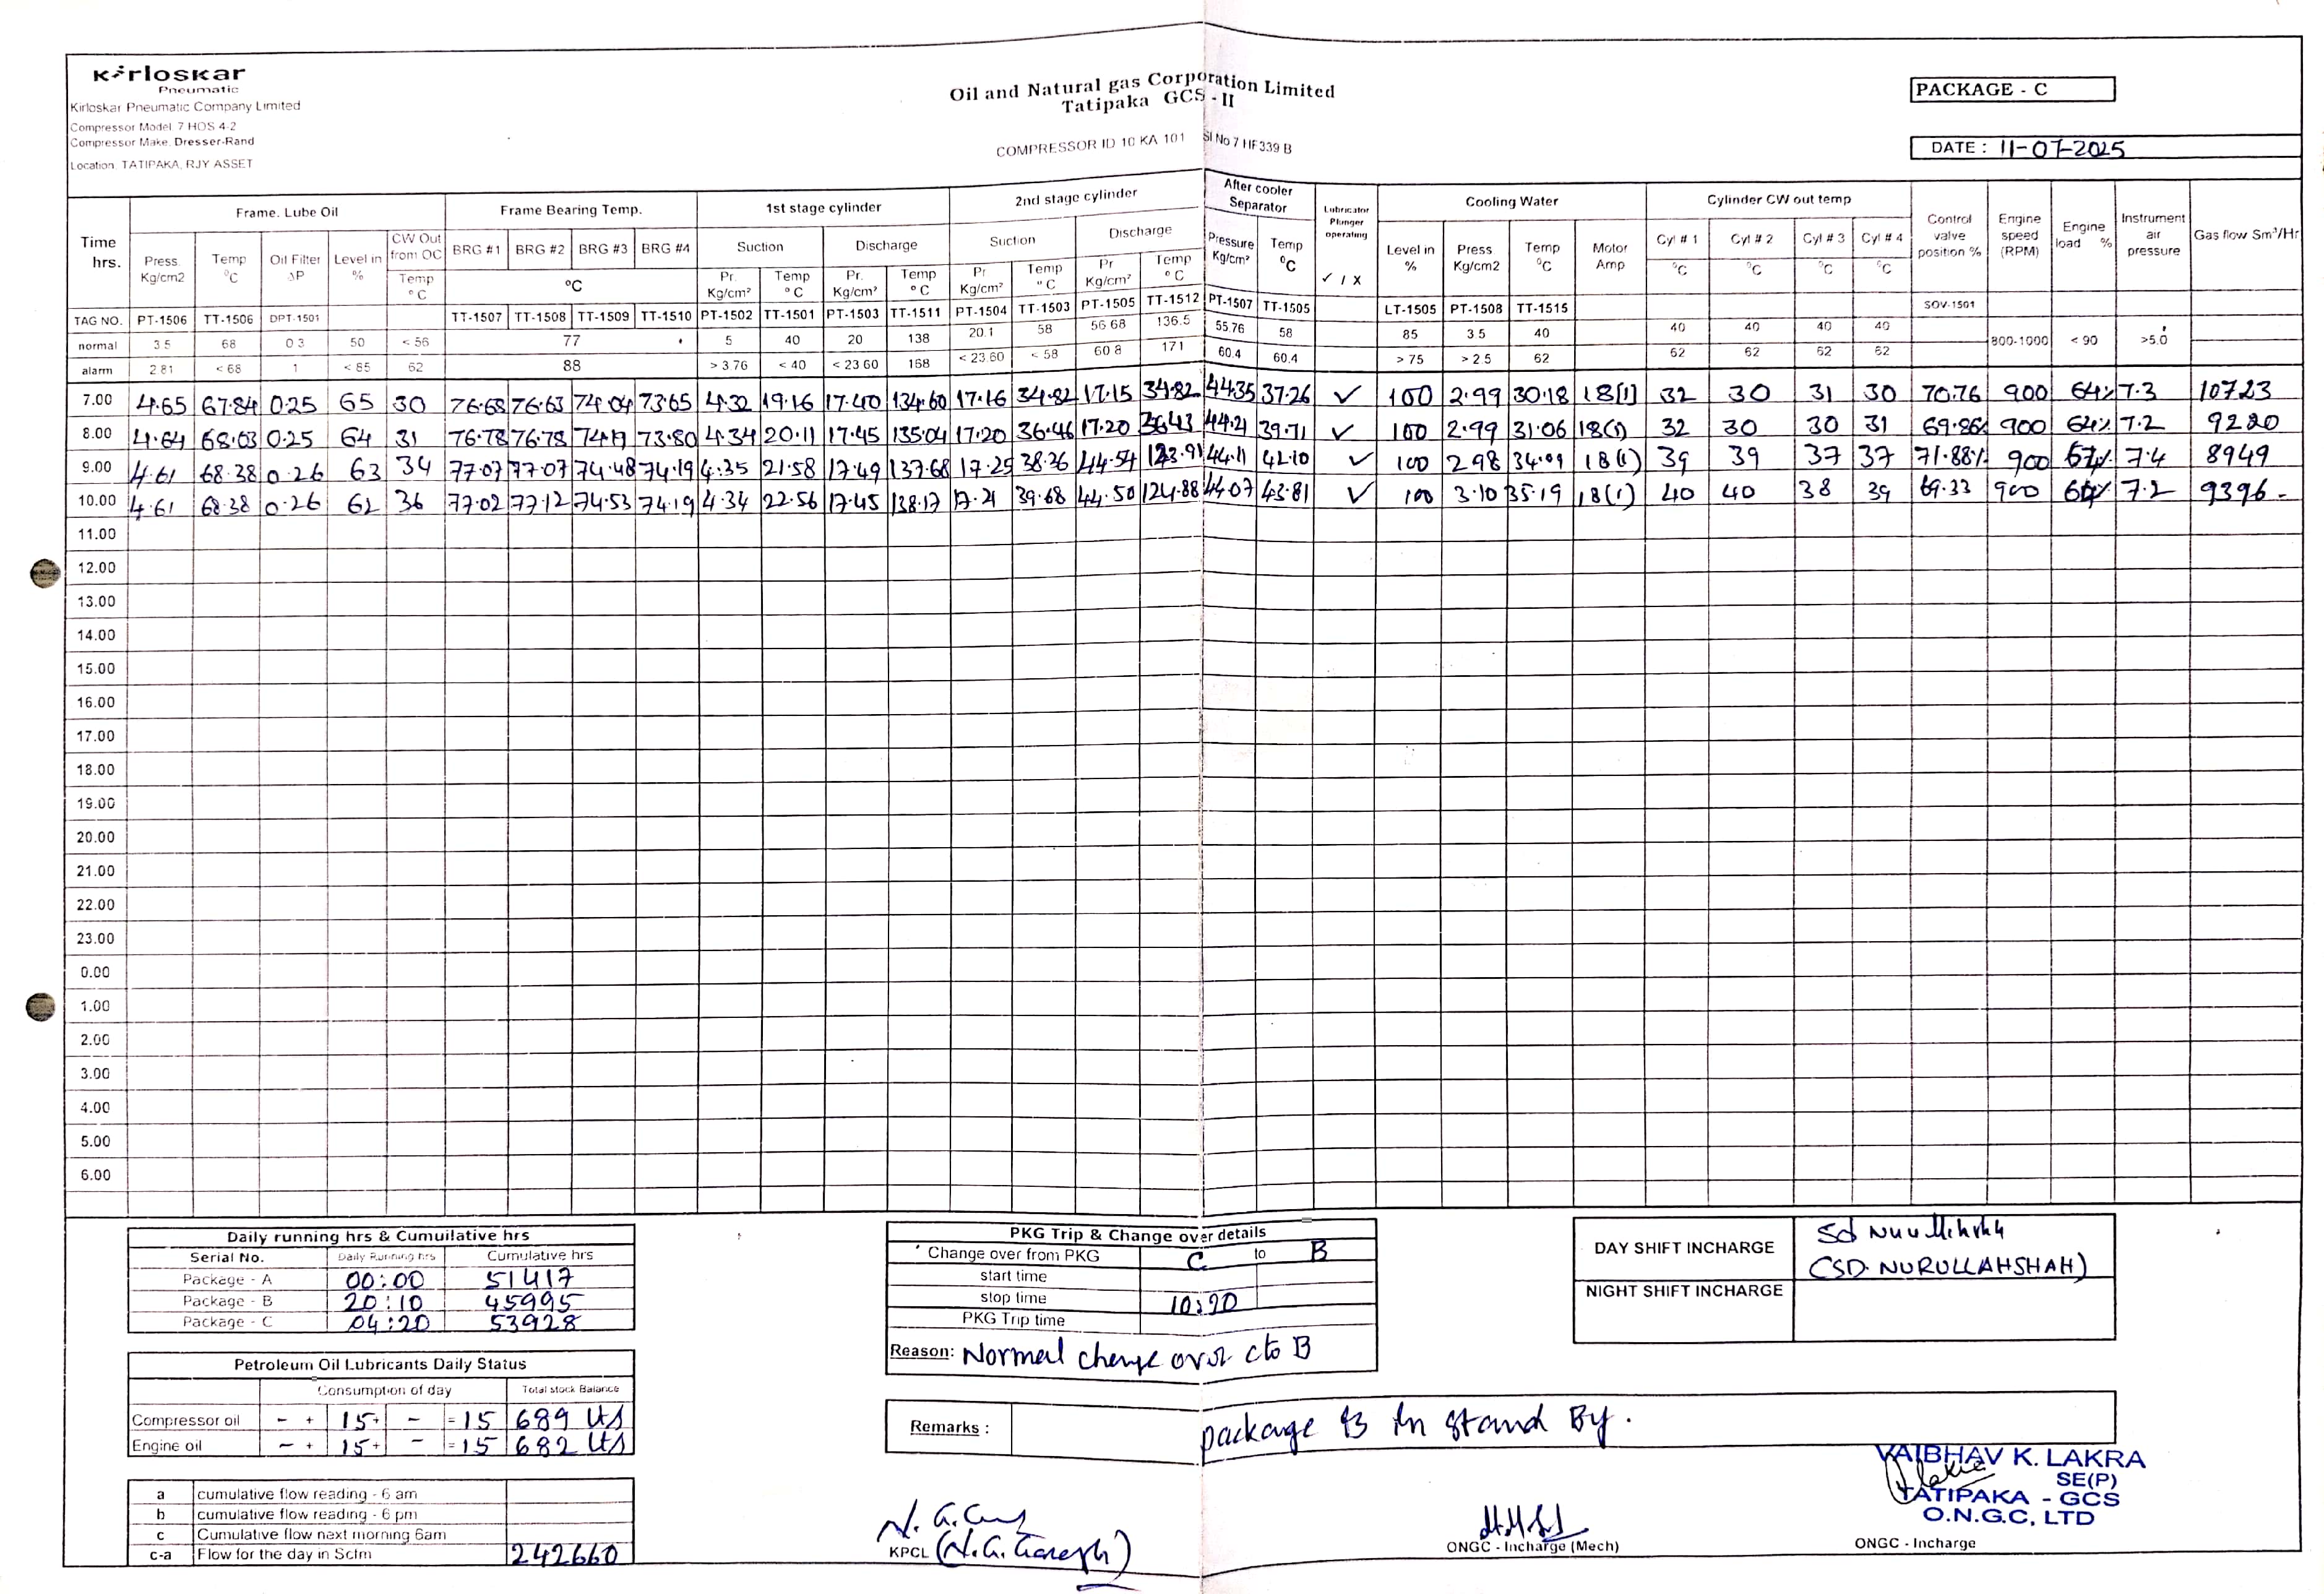 Kirloskar
Pneumatic
Kirloskar Pneumatic Company Limited
Compressor Model 7 HOS 4-2
Compressor Make. Dresser-Rand
Location. TATIPAKA, RJY ASSET
Oil and Natural gas Corporation Limited
Tatipaka GCS - II
COMPRESSOR ID 10 KA 101 Sl No 7 HF339 B
PACKAGE - C
DATE : 11-07-2025
Time hrs. Frame. Lube Oil Frame Bearing Temp. 1st stage cylinder 2nd stage cylinder After cooler Separator Lubricator Plunger operating ✓ / X Cooling Water Cylinder CW out temp Control valve position % Engine speed (RPM) Engine load % Instrument air pressure Gas flow Sm³/Hr
Press. Kg/cm2 Temp °C Oil Filter ΔP Level in % CW Out from OC Temp °C BRG #1 BRG #2 BRG #3 BRG #4 °C Suction Discharge Suction Discharge Pressure Kg/cm² Temp °C Level in % Press Kg/cm2 Temp °C Motor Amp Cyl # 1 Cyl # 2 Cyl # 3 Cyl # 4
Pr. Kg/cm² Temp °C Pr. Kg/cm² Temp °C Pr Kg/cm² Temp °C Pr Kg/cm² Temp °C °C °C °C °C
TAG NO. PT-1506 TT-1506 DPT-1501 TT-1507 TT-1508 TT-1509 TT-1510 PT-1502 TT-1501 PT-1503 TT-1511 PT-1504 TT-1503 PT-1505 TT-1512 PT-1507 TT-1505 LT-1505 PT-1508 TT-1515 SOV-1501
normal 3.5 68 0.3 50 < 56 77 5 40 20 138 20.1 58 56.68 136.5 55.76 58 85 3.5 40 40 40 40 40 800-1000 < 90 >5.0
alarm 2.81 < 68 1 < 65 62 88 > 3.76 < 40 < 23.60 168 < 23.60 < 58 60.8 171 60.4 60.4 > 75 > 2.5 62 62 62 62 62
7.00 4.65 67.84 0.25 65 30 76.68 76.63 74.04 73.65 4.32 19.16 17.40 134.60 17.16 34.82 17.15 34.82 44.35 37.26 ✓ 100 2.99 30.18 18(1) 32 30 31 30 70.76 900 64% 7.3 10723
8.00 4.64 68.03 0.25 64 31 76.78 76.78 74.19 73.80 4.34 20.11 17.45 135.04 17.20 36.46 17.20 36.43 44.21 39.71 ✓ 100 2.99 31.06 18(1) 32 30 30 31 69.86% 900 64% 7.2 9220
9.00 4.61 68.38 0.26 63 34 77.07 77.07 74.48 74.19 4.35 21.58 17.49 137.68 17.25 38.36 44.54 123.91 44.11 42.10 ✓ 100 2.98 34.09 18(1) 39 39 37 37 71.88% 900 67% 7.4 8949
10.00 4.61 68.38 0.26 62 36 77.02 77.12 74.53 74.19 4.34 22.56 17.45 138.17 17.21 39.68 44.50 124.88 44.07 43.81 ✓ 100 3.10 35.19 18(1) 40 40 38 39 69.33 900 7.2 9396-
11.00
12.00
13.00
14.00
15.00
16.00
17.00
18.00
19.00
20.00
21.00
22.00
23.00
0.00
1.00
2.00
3.00
4.00
5.00
6.00
Daily running hrs & Cumuilative hrs
Serial No. Daily Running hrs Cumulative hrs
Package - A 00:00 51417
Package - B 20:10 45995
Package - C 04:20 53928
Petroleum Oil Lubricants Daily Status
Consumption of day Total stock Balance
Compressor oil - + 15+ - =15 689 Lts
Engine oil - + 15+ - =15 682 Lts
a cumulative flow reading - 6 am
b cumulative flow reading - 6 pm
c Cumulative flow next morning 6am
c-a Flow for the day in Sc/m 242660
PKG Trip & Change over details
Change over from PKG C to B
start time
stop time 10:20
PKG Trip time
Reason: Normal change over C to B
Remarks : package B in stand By.
DAY SHIFT INCHARGE
(SD. NURULLAHSHAH)
NIGHT SHIFT INCHARGE
KPCL (N.G. Ganesh)
ONGC - Incharge (Mech)
VAIBHAV K. LAKRA
SE(P)
TATIPAKA - GCS
O.N.G.C. LTD
ONGC - Incharge